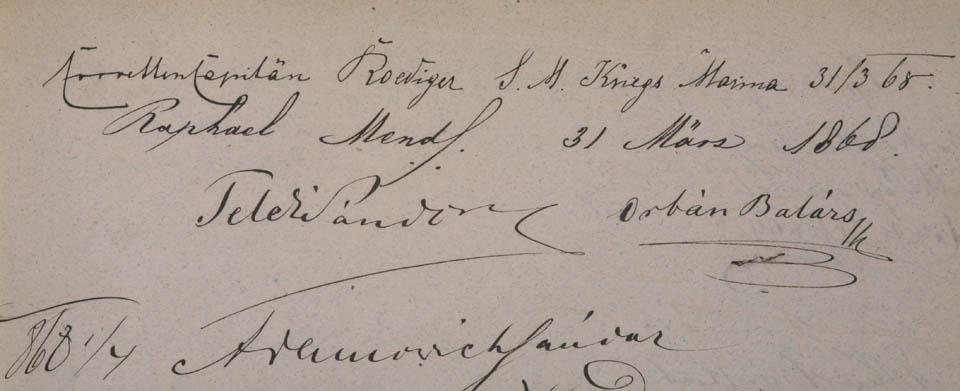 Corvetten Capitän Roediger S. M. Kriegs Marina 31/3 68.
Raphael Mendl. 31 März 1868.
Teleki Sándor Orbán Balázs
868 1/4 Sándor